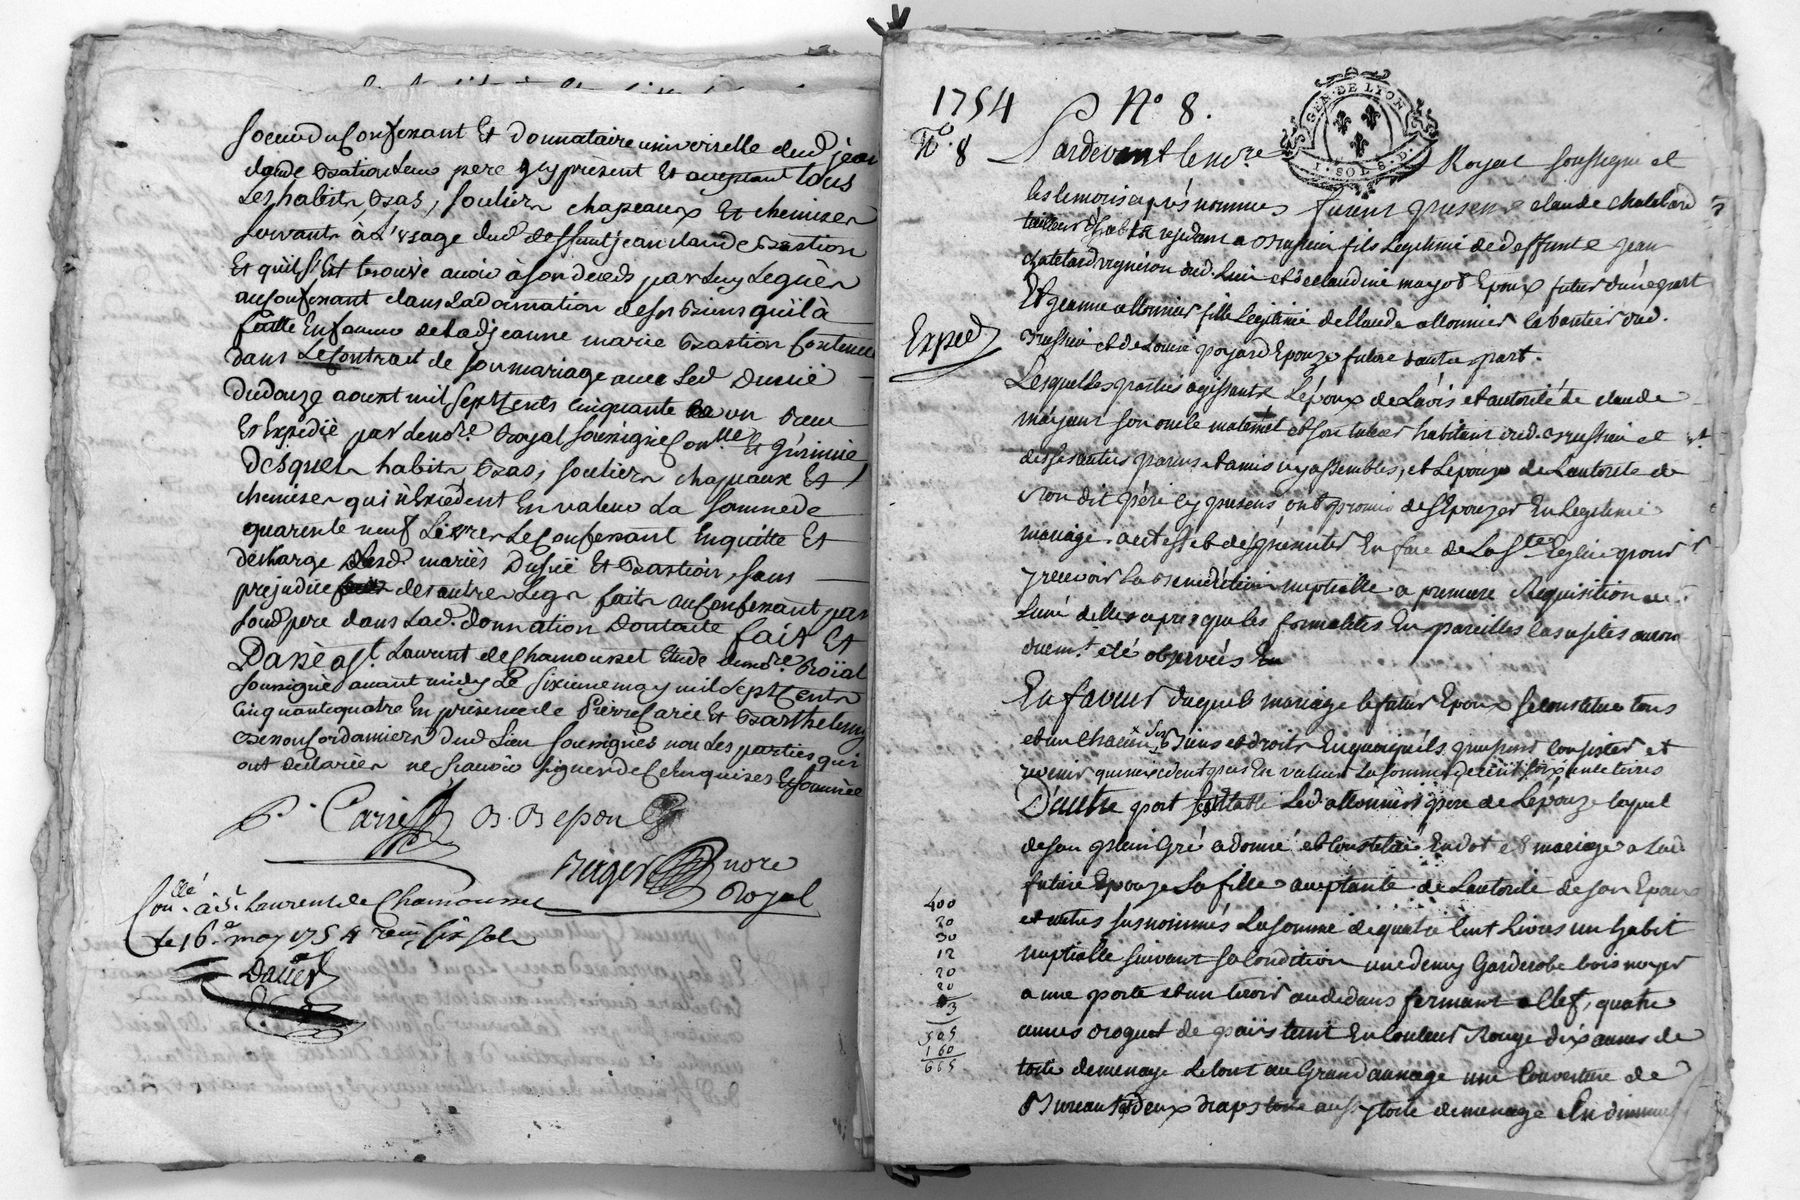 soeur du Confessant Et donnataire universelle dud jean
claude Bastion Leur pere y présent Et acceptant tous
Les habits bas, souliers chapeaux Et chemises
servants à L'usage dud deffunt jean claude Bastion
Et qu'il s'Est trouvé avoir à son deceds par Luy Legués
au Confessant dans La donnation de ses Biens qu'il à
faitte En faveur de Ladjeanne marie Bastion Contenue
dans Le Contrat de son mariage avec Led Dussié
du douze aoust mil sept Cents cinquante un Receu
Et Expedié par Le nore. Royal soussigné Conllé Et
Desquels habits bas, souliers chapeaux Et
chemises qui n'Excedent En valeur La somme de
quarente neuf Livres Le Confessant En quitte Et
décharge Lesd mariés Dussié Et Bastion, sans
prejudice des autres Legs faits au Confessant par
soud pere dans Lad. donnation Dont acte fait Et
Passé a St. Laurent de Chamousset Etude du nore. Roïal
soussigné avant midy Le sixieme may mil sept Cents
Cinquante quatre En présence de Pierre Carie Et Barthelemy
Besson Cordamiers dud Lieu soussignés non Les parties qui
ont declarées ne sçavoir signer de Ce Enquises Et sommées
P. Carrie B. Bespon
nore
Royal
Conllé. à St. Laurent de Chamousset
Le 16e may 1754 reçu six sols
1754 No 8.
No. 8
GEN. DE LYON
1. SOLS. D.
Pardevant Le nore Royal soussigné et
les temoins après nommés furent présens claude chatelard
tailleur d'habits residant a Brussieu fils Legitime de deffunt jean
chatelard vigneron dud. Lieu et de claudine mayot Epoux futur d'une part
Et jeanne allonnier fille Legitime de Claude allonnier dud.
Brussieu et de Louise poyard Epouze future d'autre part.
Expedé
Lesquelles parties agissants L'époux de L'avis et autorité de claude
son oncle maternel et son tuteur habitant aud. Brussieu et
de ses autres parens et amis icy assemblés, et L'épouze de L'autorité de
son dit père icy present ont promis de s'Epouzer En Legitime
mariage et de se présenter En face de La Ste Eglise pour
y recevoir La benediction nuptialle a premiere Requisition de
L'une d'elles apres que les formalités En pareilles cas usités auront
duemt. été observés
En faveur duquel mariage le futur Epoux se constitue tous
et un chacun ses Biens et droits En quoi qu'ils puissent consister et
revenir qui n'excedent pas En valeur La somme de cent soixante livres
D'autre part Led allonnier pere de L'épouze lequel
de son plein Gré a donné et constitué En dot et mariage a Lad
future Epouze sa fille acceptante de L'autorité de son Epoux
et autres susnommés La somme de quatre Cent Livres un habit
nuptialle suivant sa Condition une demy Garderobe bois noyer
a une porte et un tiroir au dedans fermant a Clef, quatre
aunes droguet de païs teint En Couleur Rouge dix aunes de
toile de menage Le tout au Grand aunage une Couverture de
Bureau deux draps toile aussy toile de menage
400
20
30
12
20
20
3
505
160
665